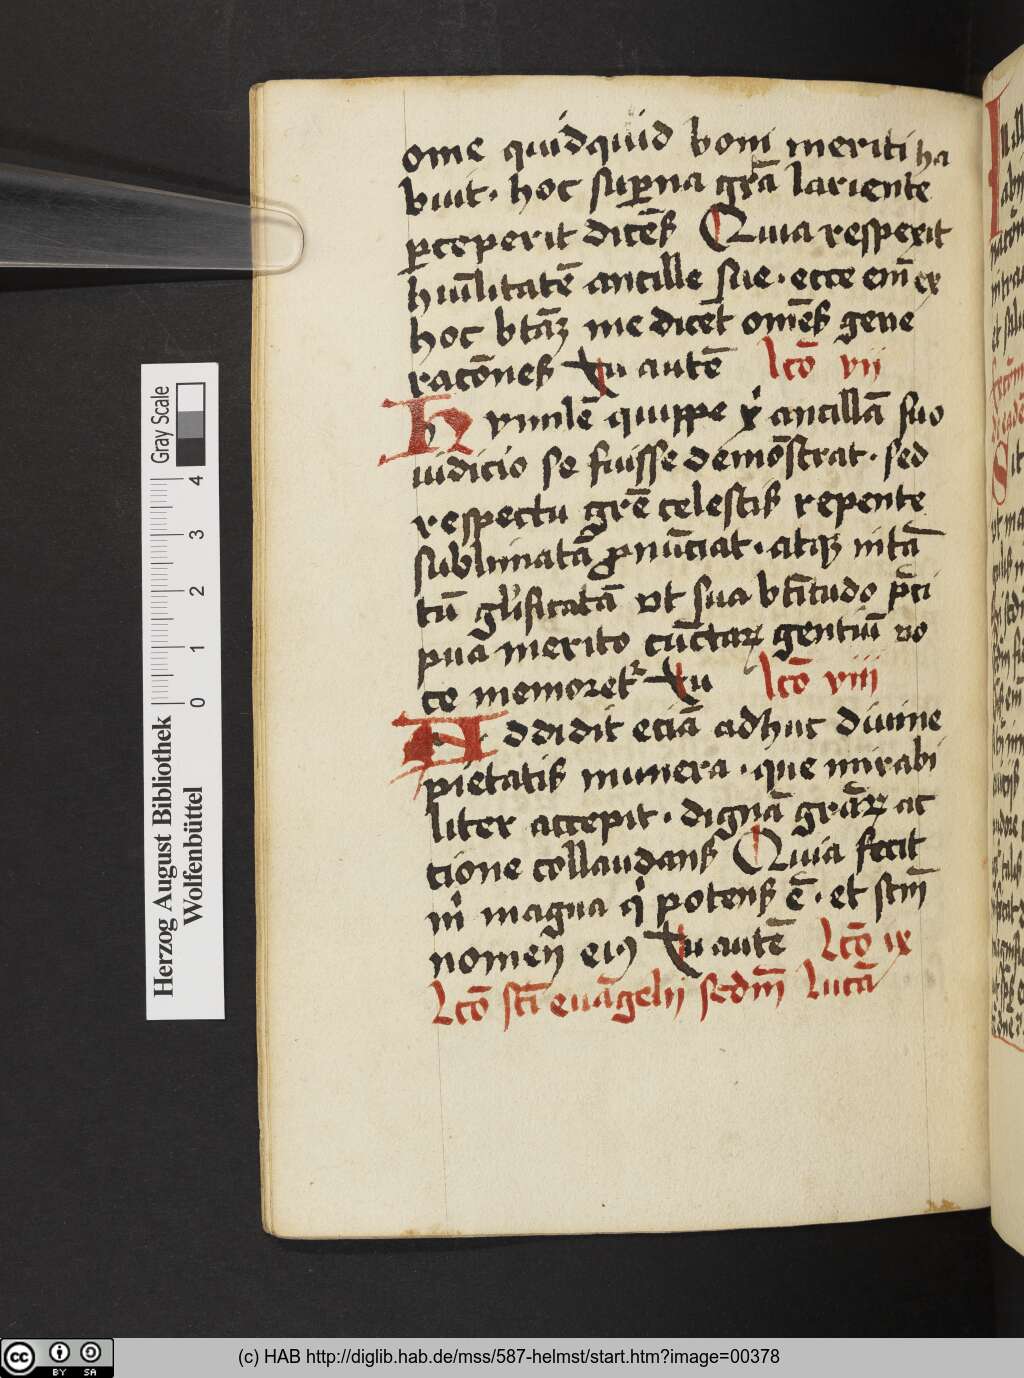 ome quidquid boni meriti ha
buit · hoc sup̱na grā lariente
ꝑceperit dicēs Quia respexit
hūilitatē ancille sue · ecce eī̄ ex
hoc btāꝫ me dicēt oīes gene
racōnes Tu autē lcō vii
Humilē quippe xᵢ ancillā suo
iudicio se fuisse demōstrat · sed
respectu grē celestis repente
sublimatā ꝓnūciat · atqꝫ intā
tū glʼificatā ut sua btītudo p̄ci
pua merito cūctaꝝ gentiū vo
ce memoretᷣ Tu lcō viii
Addidit eciā adhuc diuine
pietatis munera · que mirabi
liter accepit · dignā grāꝝ ac
tione collaudans Quia fecit
mⁱ magna qⁱ potens ē · et scm̄
nomen eiꝯ Tu autē lcō ix
Lcō scī euāgelij sedm̄ lucā
Gray Scale
0 1 2 3 4
Herzog August Bibliothek
Wolfenbüttel
cc BY SA
(c) HAB http://diglib.hab.de/mss/587-helmst/start.htm?image=00378